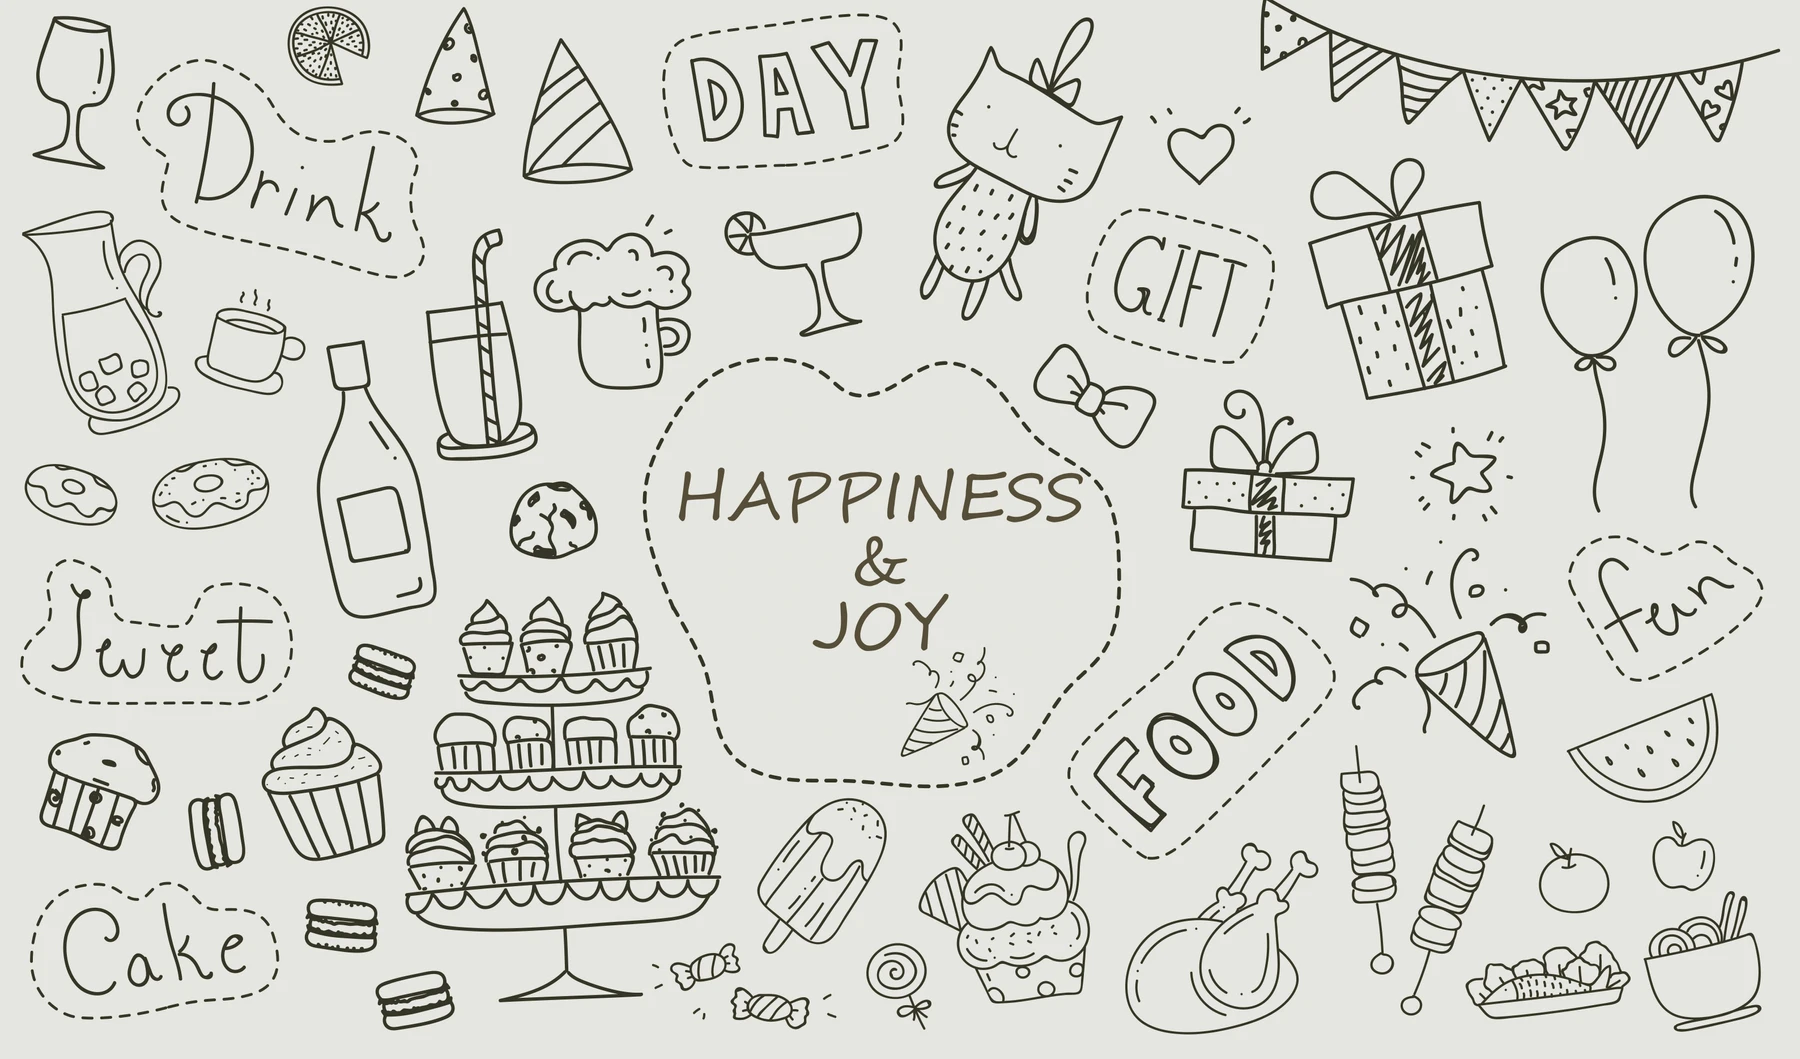 DAY
Drink
GIFT
HAPPINESS
&
JOY
Sweet
fun
FOOD
Cake